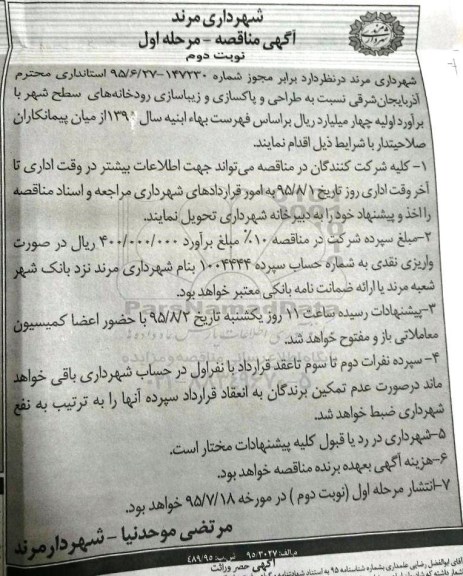 شهرداری مرند
آگهی مناقصه - مرحله اول
نوبت دوم
شهرداری مرند درنظردارد برابر مجوز شماره ۱۴۷۲۳۰-۹۵/۶/۲۷ استانداری محترم
آذربایجان شرقی نسبت به طراحی و پاکسازی و زیباسازی رودخانه‌های سطح شهر با
برآورد اولیه چهار میلیارد ریال براساس فهرست بهاء ابنیه سال از میان پیمانکاران
صلاحیتدار با شرایط ذیل اقدام نمایند.
۱- کلیه شرکت کنندگان در مناقصه می‌تواند جهت اطلاعات بیشتر در وقت اداری تا
آخر وقت اداری روز تاریخ ۹۵/۸/۱ به امور قراردادهای شهرداری مراجعه و اسناد مناقصه
را اخذ و پیشنهاد خود را به دبیرخانه شهرداری تحویل نمایند.
۲- مبلغ سپرده شرکت در مناقصه ۱۰٪ مبلغ برآورد ۴۰۰/۰۰۰/۰۰۰ ریال در صورت
واریزی نقدی به شماره حساب سپرده ۱۰۰۴۴۴۴ بنام شهرداری مرند نزد بانک شهر
شعبه مرند یا ارائه ضمانت نامه بانکی معتبر خواهد بود.
۳- پیشنهادات رسیده ساعت ۱۱ روز یکشنبه تاریخ ۹۵/۸/۲ با حضور اعضا کمیسیون
معاملاتی باز و مفتوح خواهد شد.
۴- سپرده نفرات دوم تا سوم تا عقد قرارداد با نفر اول در حساب شهرداری باقی خواهد
ماند درصورت عدم تمکین برندگان به انعقاد قرارداد سپرده آنها را به ترتیب به نفع
شهرداری ضبط خواهد شد.
۵- شهرداری در رد یا قبول کلیه پیشنهادات مختار است.
۶- هزینه آگهی بعهده برنده مناقصه خواهد بود.
۷- انتشار مرحله اول (نوبت دوم) در مورخه ۹۵/۷/۱۸ خواهد بود.
مرتضی موحدنیا - شهردار مرند
م.الف: ۹۵/۳۰۲۷
آگهی حصر وراثت
آقای ابوالفضل رضایی علمداری بشماره شناسنامه ۹۵